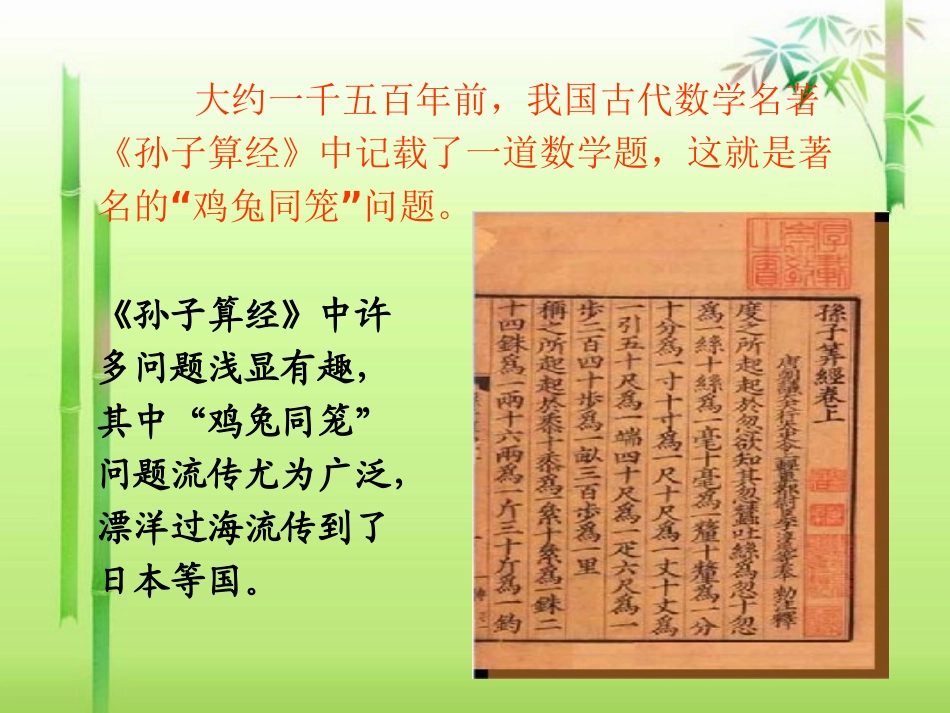 大约一千五百年前，我国古代数学名著
《孙子算经》中记载了一道数学题，这就是著
名的“鸡兔同笼”问题。
《孙子算经》中许
多问题浅显有趣，
其中“鸡兔同笼”
问题流传尤为广泛，
漂洋过海流传到了
日本等国。
孫子筭經卷上
度之所起起於忽欲知其忽蠶吐絲爲忽十忽
爲一絲十絲爲一毫十毫爲一釐十釐爲一分
十分爲一寸十寸爲一尺十尺爲一丈十丈爲
一引五十尺爲一端四十尺爲一疋六尺爲一
步二百四十步爲一畝三百步爲一里
稱之所起起於黍十黍爲一絫十絫爲一銖二
十四銖爲一兩十六兩爲一斤三十斤爲一鈞